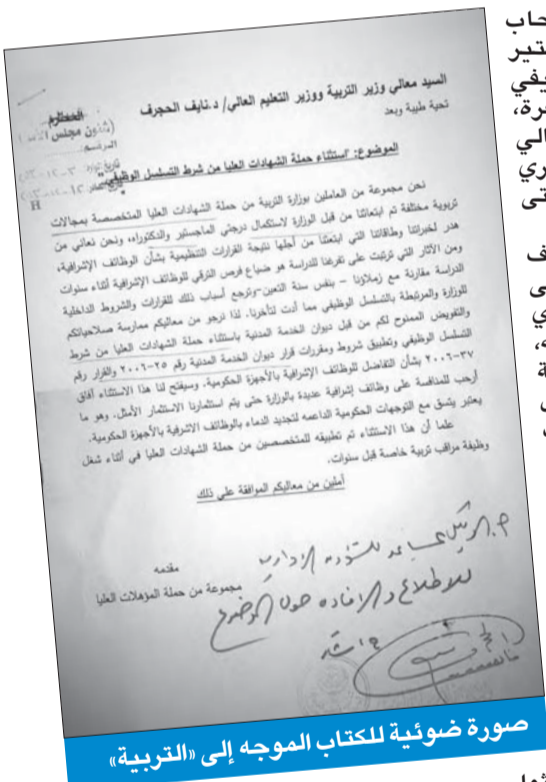 السيد معالي وزير التربية ووزير التعليم العالي/ د.نايف الحجرف
المحترم
تحية طيبة وبعد
الموضوع: "استثناء حملة الشهادات العليا من شرط التسلسل الوظيفي"
نحن مجموعة من العاملين بوزارة التربية من حملة الشهادات العليا المتخصصة بمجالات
تربوية مختلفة تم ابتعاثنا من قبل الوزارة لاستكمال درجتي الماجستير والدكتوراه، ونحن نعاني من
هدر لخبراتنا وطاقاتنا التي ابتعثنا من أجلها نتيجة القرارات التنظيمية بشأن الوظائف الإشرافية،
ومن الآثار التي ترتبت على تفرغنا للدراسة هو ضياع فرص الترقي للوظائف الإشرافية أثناء سنوات
الدراسة مقارنة مع زملاؤنا - بنفس سنة التعين-وترجع أسباب ذلك للقرارات والشروط الداخلية
للوزارة والمرتبطة بالتسلسل الوظيفي مما أدت لتأخرنا. لذا نرجو من معاليكم ممارسة صلاحياتكم
والتفويض الممنوح لكم من قبل ديوان الخدمة المدنية باستثناء حملة الشهادات العليا من شرط
التسلسل الوظيفي وتطبيق شروط ومقررات قرار ديوان الخدمة المدنية رقم ٢٥-٢٠٠٦ والقرار رقم
٣٧-٢٠٠٦ بشأن التفاضل للوظائف الإشرافية بالأجهزة الحكومية. وسيفتح لنا هذا الاستثناء آفاق
أرحب للمنافسة على وظائف إشرافية عديدة بالوزارة حتى يتم استثمارنا الاستثمار الأمثل. وهو ما
يعتبر يتسق مع التوجهات الحكومية الداعمه لتجديد الدماء بالوظائف الاشرفية بالأجهزة الحكومية.
علما أن هذا الاستثناء تم تطبيقه للمتخصصين من حملة الشهادات العليا في أثناء شغل
وظيفة مراقب تربية خاصة قبل سنوات.
أملين من معاليكم الموافقة على ذلك
مقدمه
مجموعة من حملة المؤهلات العليا
للاطلاع والافاده حول الموضوع
صورة ضوئية للكتاب الموجه إلى «التربية»